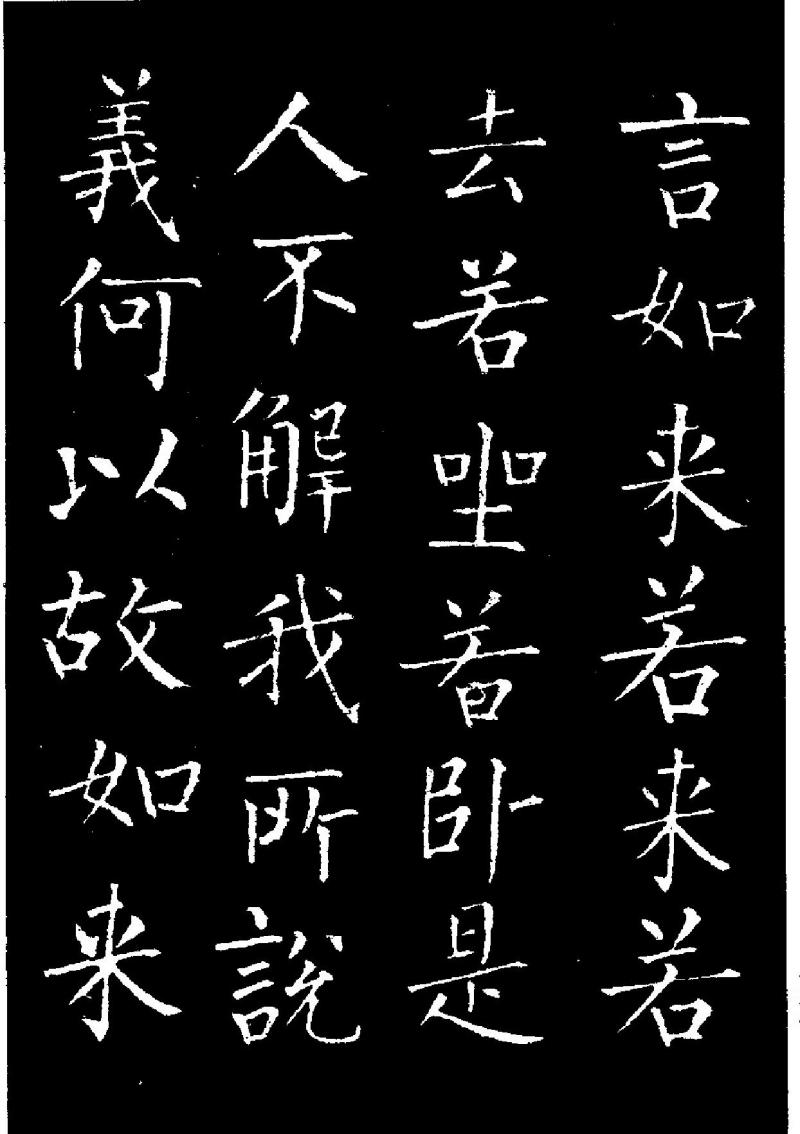 言如来若来若
去若坐若卧是
人不解我所說
義何以故如来